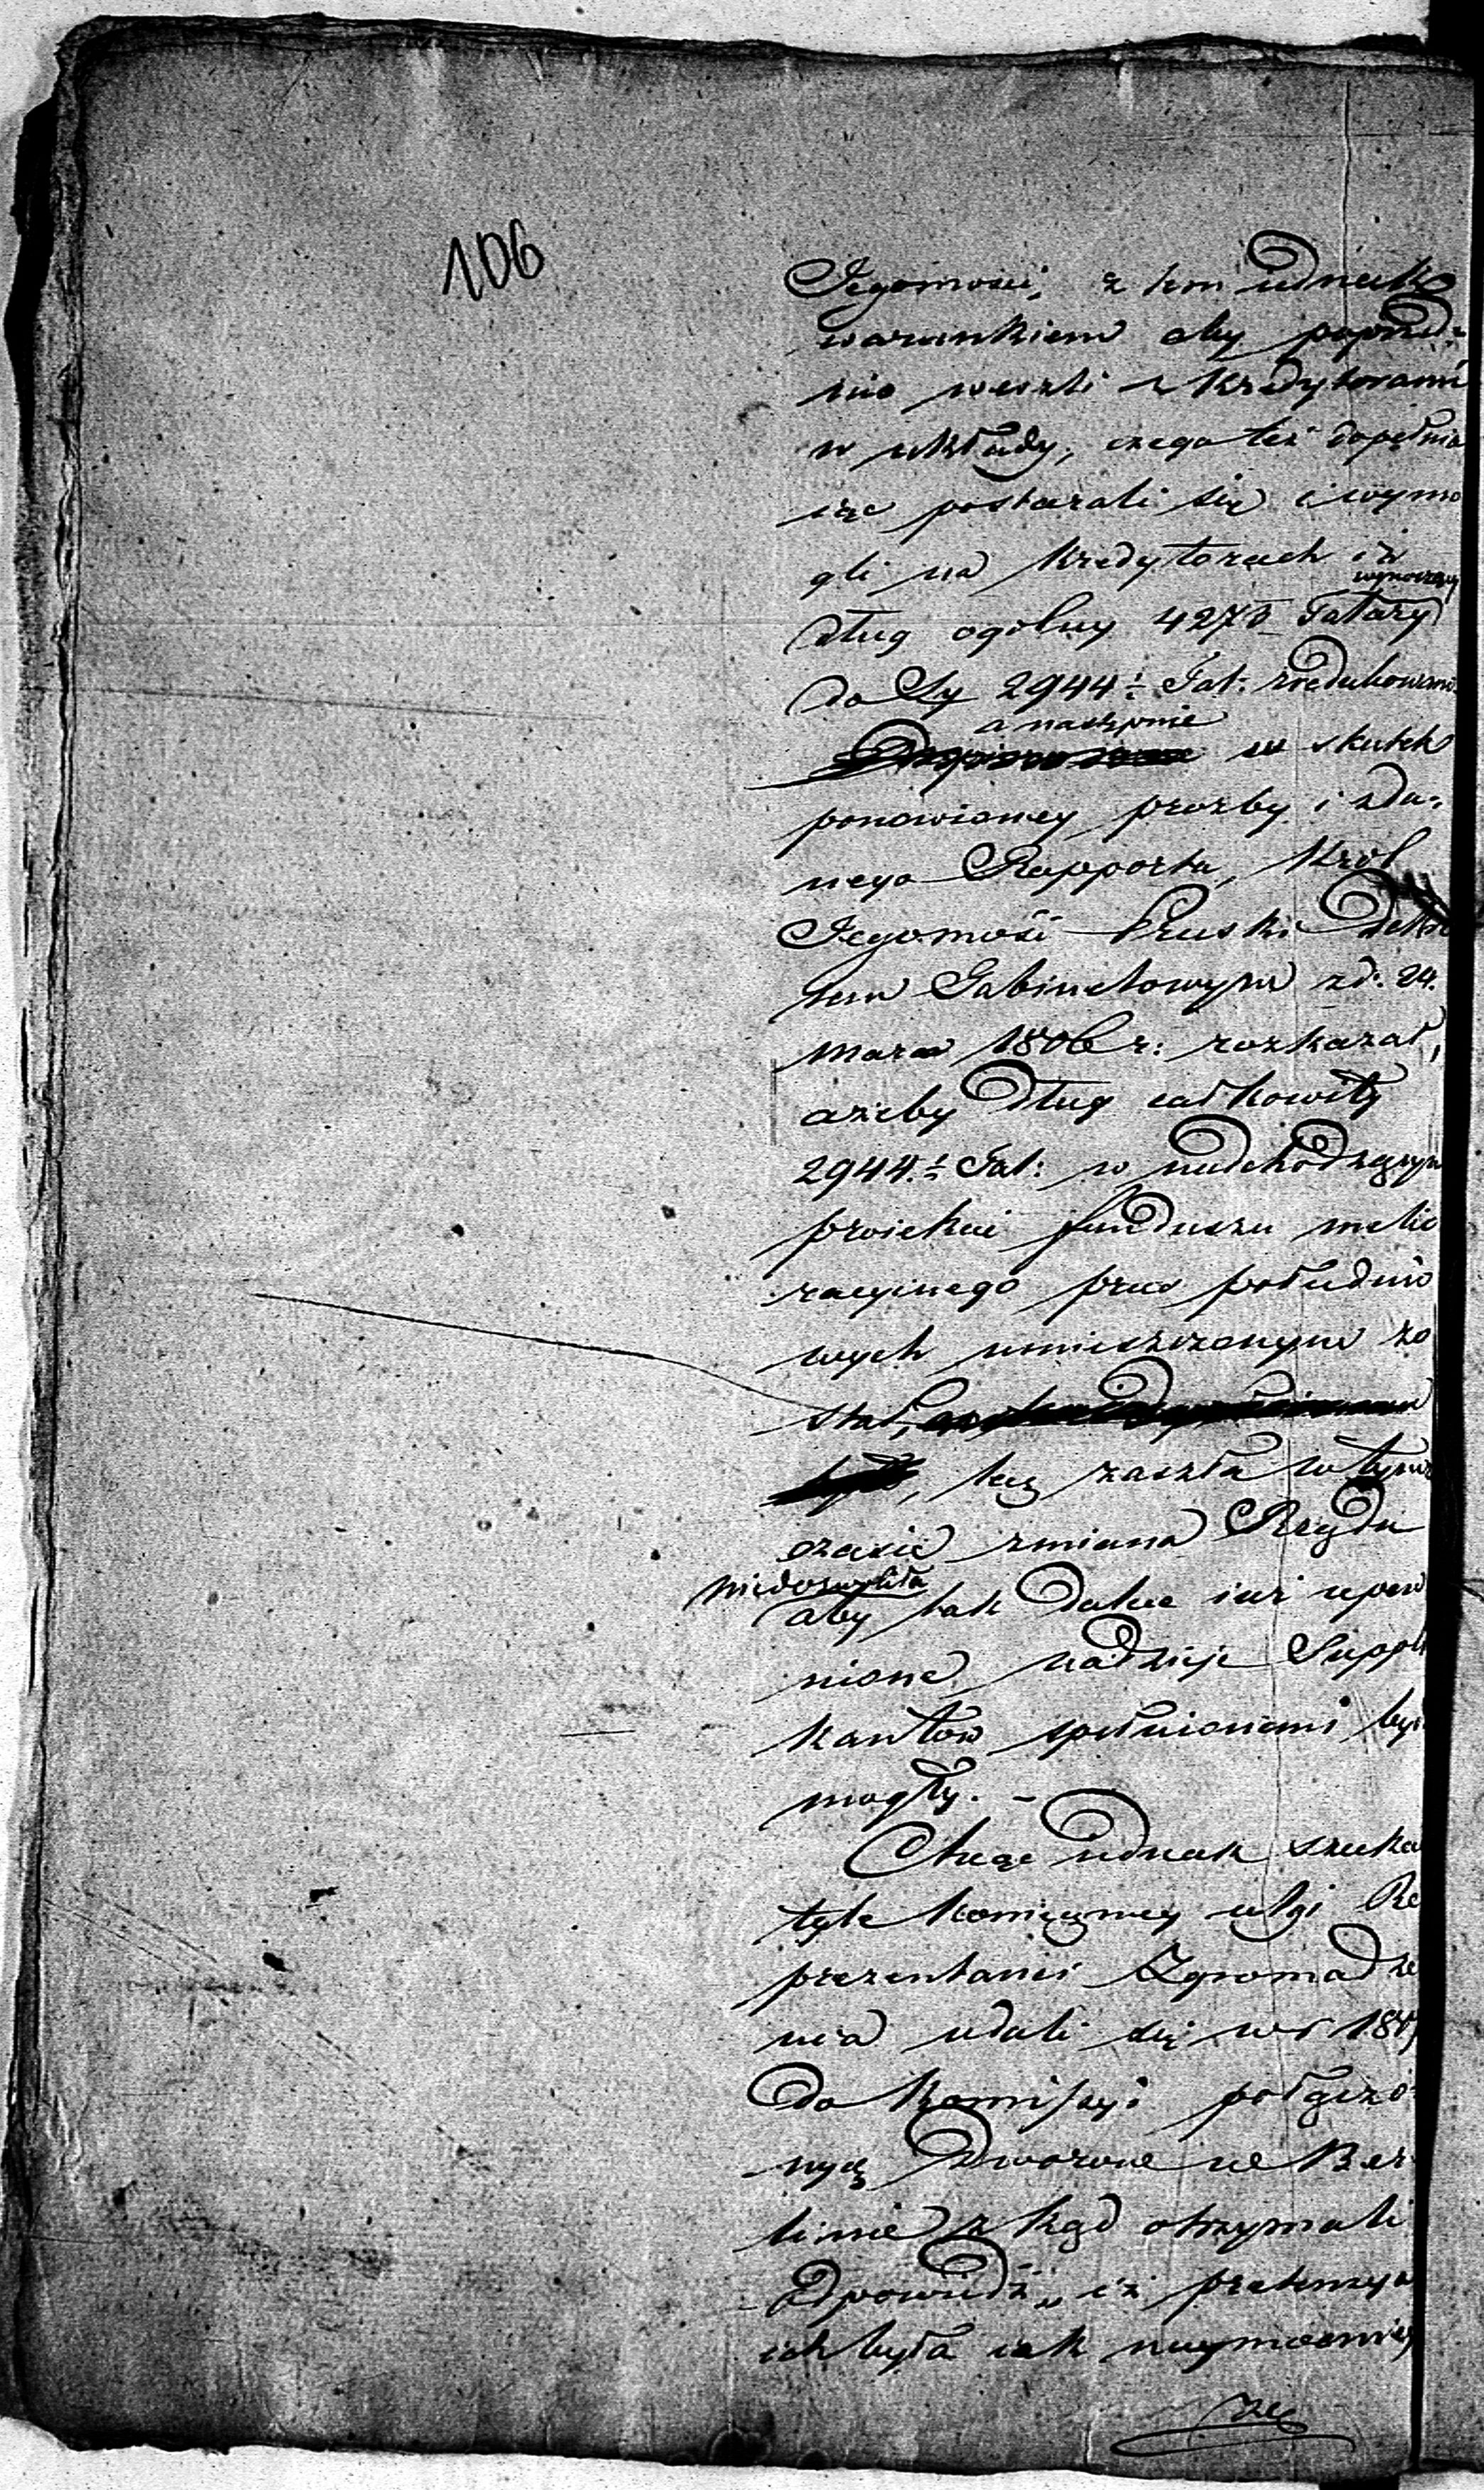 106
Jegomości, z tem iednak
warunkiem aby poprzed„
nio weszli z Kredytorami
w układy, czego też dopełnia
iąc postarali się i wymo
gli na Kredytorach iż
wynoszący
dług ogolny 4275 Talary
do Sy 2944 1/2 Tal: zredukowano
a następnie
w skutek
ponowioney prozby i zda„
nego Rapportu, Krol
Jegomość Pruski Dekre
tem Gabinetowym z d: 24.
marca 1806 r: rozkazał,
ażeby Dług całkowity
2944 1/2 Tal: w nadchodzącym
proiekcie funduszu melio
racyinego prus południo
wych umieszczonym zo
stał,
, lecz zaszła w tym
czasie zmiana Rządu
niedozwoliła
aby tak dalece iuż upew
nione nadzieje Suppli
kantow spełnionemi być
mogły. –
Chcąc iednak szukać
tyle koniecznej ulgi Re
prezentanci Zgromadze
nia udali się w r 181
do Kommissyi połączo
nych Dworow w Ber
linie z kąd otrzymali
Odpowiedź „iż pretensya
ich była iak naymocniej